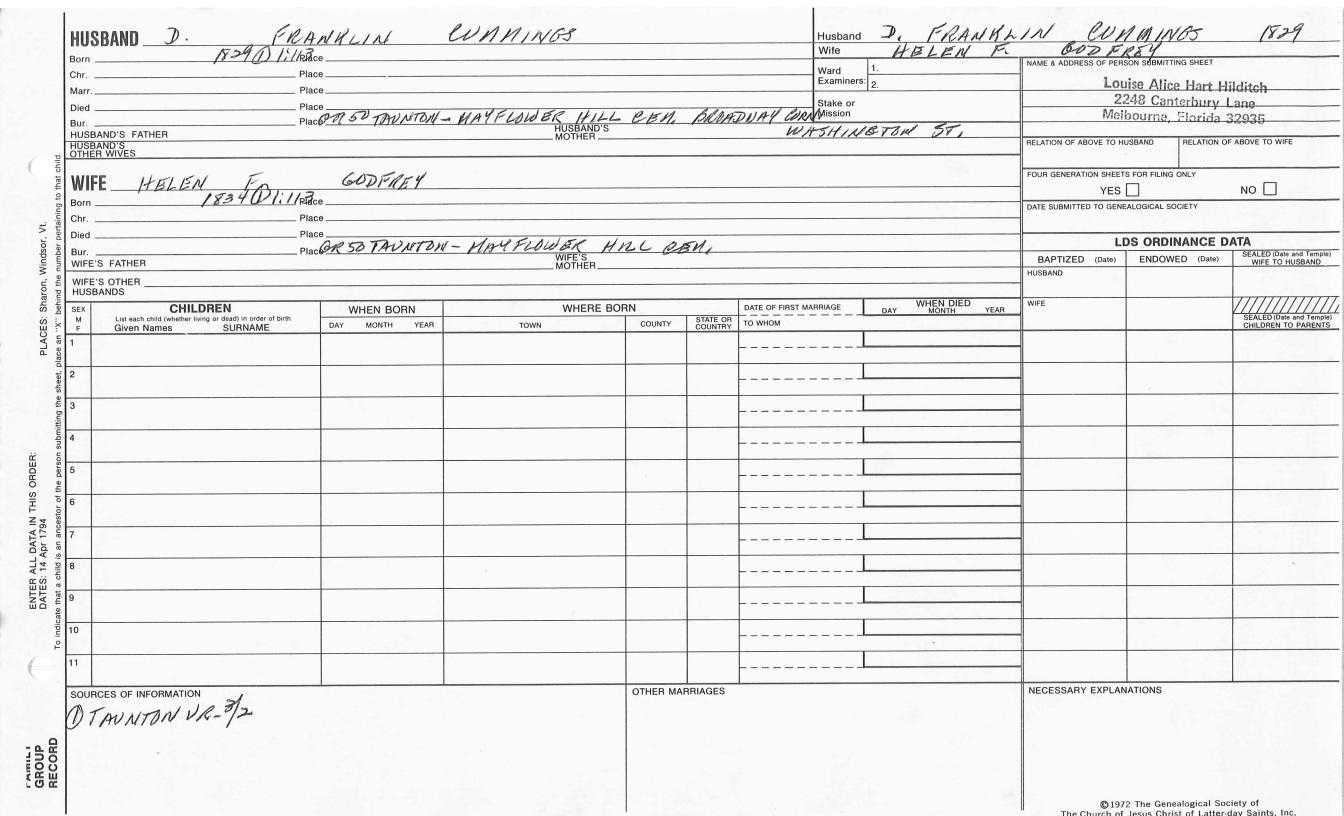 HUSBAND D. FRANKLIN CUMMINGS
Born 1829 ① 1:113 Place
Chr. Place
Marr. Place
Died Place
Bur. Place OR 50 TAUNTON - MAYFLOWER HILL CEM. BROADWAY CORN
WASHINGTON ST.
HUSBAND'S FATHER HUSBAND'S MOTHER
HUSBAND'S OTHER WIVES
WIFE HELEN F. GODFREY
Born 1834 ① 1:113 Place
Chr. Place
Died Place
Bur. Place OR 50 TAUNTON - MAYFLOWER HILL CEM.
WIFE'S FATHER WIFE'S MOTHER
WIFE'S OTHER HUSBANDS
Husband D. FRANKLIN CUMMINGS 1829
Wife HELEN F. GODFREY
Ward Examiners: 1.
2.
Stake or Mission
NAME & ADDRESS OF PERSON SUBMITTING SHEET
Louise Alice Hart Hilditch
2248 Canterbury Lane
Melbourne, Florida 32935
RELATION OF ABOVE TO HUSBAND RELATION OF ABOVE TO WIFE
FOUR GENERATION SHEETS FOR FILING ONLY
YES NO
DATE SUBMITTED TO GENEALOGICAL SOCIETY
LDS ORDINANCE DATA
BAPTIZED (Date) ENDOWED (Date) SEALED (Date and Temple) WIFE TO HUSBAND
HUSBAND
WIFE
SEALED (Date and Temple) CHILDREN TO PARENTS
SEX M F
CHILDREN
List each child (whether living or dead) in order of birth
Given Names SURNAME
WHEN BORN
DAY MONTH YEAR
WHERE BORN
TOWN COUNTY STATE OR COUNTRY
DATE OF FIRST MARRIAGE
TO WHOM
WHEN DIED
DAY MONTH YEAR
1
2
3
4
5
6
7
8
9
10
11
SOURCES OF INFORMATION
① TAUNTON VR-3/2
OTHER MARRIAGES
NECESSARY EXPLANATIONS
©1972 The Genealogical Society of
The Church of Jesus Christ of Latter-day Saints, Inc.
PLACES: Sharon, Windsor, Vt.
ENTER ALL DATA IN THIS ORDER:
DATES: 14 Apr 1794
To indicate that a child is an ancestor of the person submitting the sheet, place an "X" behind the number pertaining to that child.
FAMILY
GROUP
RECORD